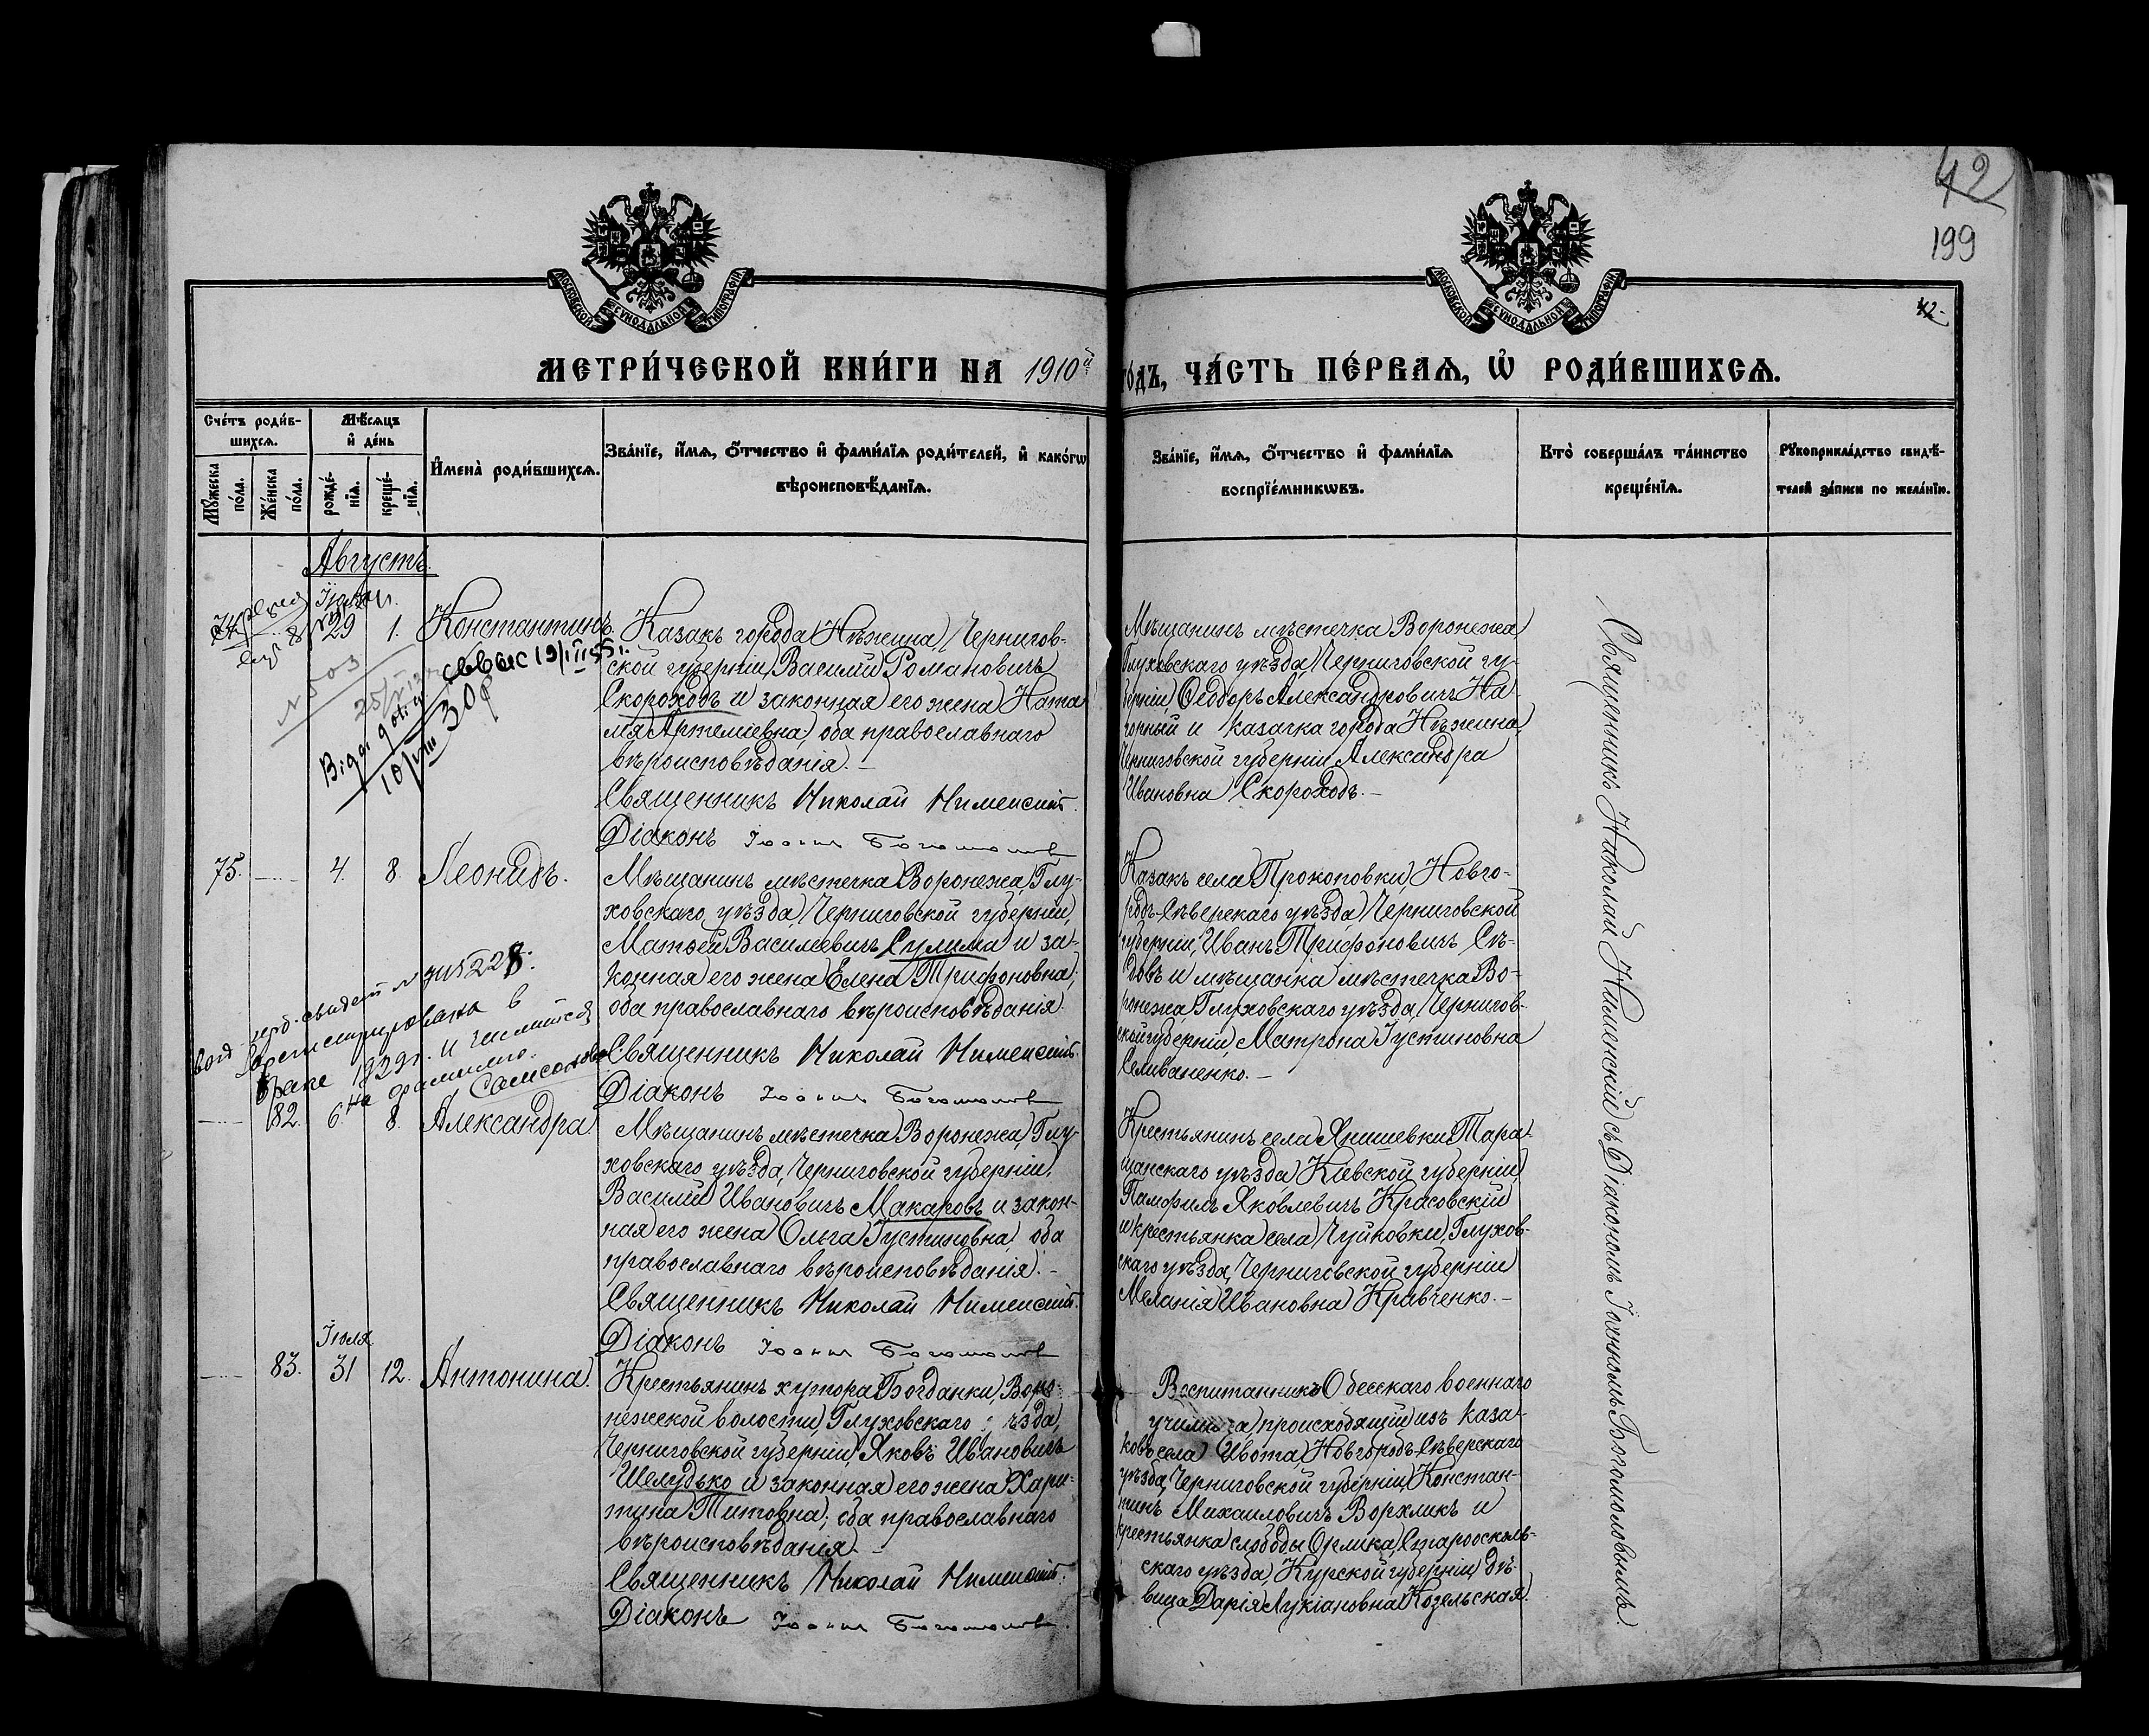 42
199
42
МОСКОВСКОЙ СѴНОДАЛЬНОЙ ТИПОГРАФІИ
МОСКОВСКОЙ СѴНОДАЛЬНОЙ ТИПОГРАФІИ
МЕТРИ́ЧЕСКОЙ КНИ́ГИ НА 1910й
ГО́ДЪ, ЧА́СТЬ ПЕ́РВАѦ, Ѡ҆ РОДИ́ВШИХСѦ.
Сче́тъ роди́в-
шихсѧ.
Мꙋжеска
по́ла.
Же́нска
по́ла.
Мѣ́сѧцъ
и҆ де́нь
рожде́-
нїѧ.
креще́-
нїѧ.
И҆мена̀ роди́вшихсѧ.
Зва́нїе, и҆́мѧ, ѻ҆́тчество и҆ фами́лїѧ роди́телей, и҆ како́гѡ
вѣроисповѣ́данїѧ.
Зва́нїе, и҆́мѧ, ѻ҆́тчество и҆ фами́лїѧ
воспрїе́мникѡвъ.
Кто̀ соверша́лъ та́инство
креще́нїѧ.
Рꙋкоприкла́дство свидѣ́-
телей за́писи по жела́нїю.
Августъ.
Іюля
29 1. Константинъ.
Казакъ города Нѣжина, Чернигов-
ской губерніи, Василій Романовичъ
Скороходъ и законная его жена Ната
лія Артеміевна, оба православнаго
вѣроисповѣданія.
Священникъ Николай Нименскій.
Діаконъ Іоаннъ Богомоловъ
Мѣщанинъ мѣстечка Воронежа
Глуховскаго уѣзда, Черниговской гу-
берніи, Ѳеодоръ Александровичъ На-
горный и казачка города Нѣжина,
Черниговской губерніи Александра
Ивановна Скороходъ.
N 503
10/VIII 30 р
75. 4. 8. Леонидъ.
Мѣщанинъ мѣстечка Воронежа, Глу-
ховскаго уѣзда, Черниговской губерніи,
Матѳей Василіевичъ Сулима и за-
конная его жена Елена Трифоновна,
оба православнаго вѣроисповѣданія.
Священникъ Николай Нименскій.
Діаконъ Іоаннъ Богомоловъ
Казакъ села Прокоповки, Новго-
родъ-Сѣверскаго уѣзда, Черниговской
губерніи, Иванъ Трифоновичъ Сѣ-
довъ и мѣщанка мѣстечка Во-
ронежа, Глуховскаго уѣзда, Чернигов-
ской губерніи, Матрона Іустиновна
Селиваненко.
Зарегистрирована в
браке 1929г. и числится
на фамилию
82. 6. 8. Александра
Мѣщанинъ мѣстечка Воронежа, Глу-
ховскаго уѣзда, Черниговской губерніи,
Василій Ивановичъ Макаровъ и закон-
ная его жена Ольга Іустиновна, оба
православнаго вѣроисповѣданія.
Священникъ Николай Нименскій.
Діаконъ Іоаннъ Богомоловъ
Крестьянинъ села Янишевки, Тара-
щанскаго уѣзда, Кіевской губерніи,
Памфилъ Яковлевичъ Красовскій
и крестьянка села Чуйковки, Глухов-
скаго уѣзда, Черниговской губерніи
Меланія Ивановна Кравченко.
Іюля
83. 31 12. Антонина.
Крестьянинъ хутора Богданки, Воро-
нежской волости, Глуховскаго уѣзда,
Черниговской губерніи, Яковъ Ивановичъ
Шелудько и законная его жена Хари-
тина Титовна, оба православнаго
вѣроисповѣданія.
Священникъ Николай Нименскій.
Діаконъ Іоаннъ Богомоловъ.
Воспитанникъ Одесскаго военнаго
училища, происходящій изъ каза-
ковъ села Ивота, Новгородъ-Сѣверскаго
уѣзда, Черниговской губерніи, Констан-
тинъ Михаиловичъ Ворхликъ и
крестьянка слободы Орлика, Старооскъль-
скаго уѣзда, Курской губерніи, дѣ-
вица Дарія Лукіановна Козельская.
Священникъ Николай Нименскій съ Діакономъ Іоанномъ Богомоловымъ.